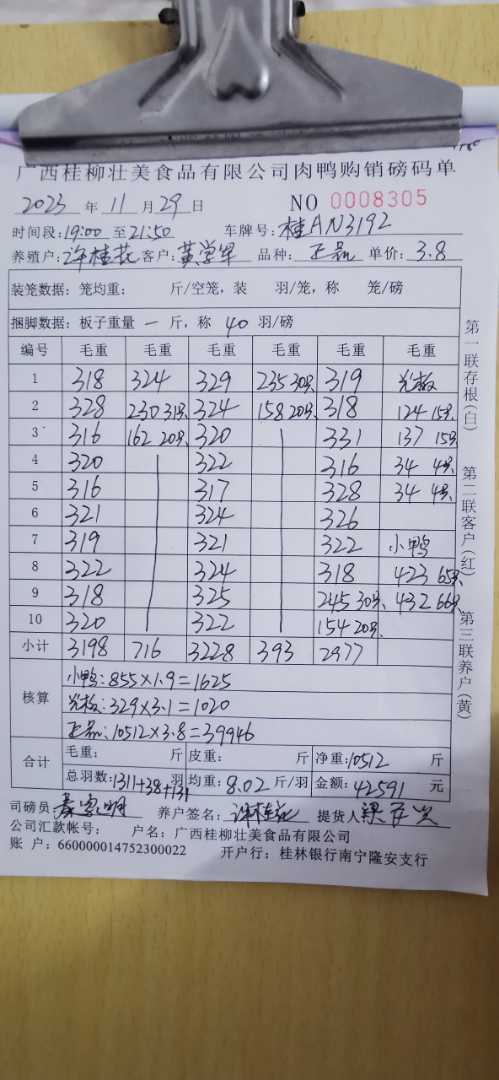 广西桂柳壮美食品有限公司肉鸭购销磅码单
2023 年 11 月 29 日 NO 0008305
时间段:19:00 至 21:50 车牌号:桂AN3192
养殖户:许桂花 客户:黄堂军 品种: 正品 单价:3.8
装笼数据:笼均重: 斤/空笼,装 羽/笼,称 笼/磅
捆脚数据:板子重量 一 斤,称 40 羽/磅
编号 毛重 毛重 毛重 毛重 毛重 毛重
1 318 324 329 235 30只 319 光板
2 328 230 31只 324 158 20只 318 124 15只
3 316 162 20只 320 331 137 15只
4 320 322 316 34 4只
5 316 317 328 34 4只
6 321 324 326
7 319 321 322 小鸭
8 322 324 318 423 65只
9 318 325 245 30只 432 66只
10 320 322 154 20只
小计 3198 716 3228 393 2977
核算
小鸭:855×1.9=1625
光板:329×3.1=1020
正品:10512×3.8=39946
合计 毛重: 斤 皮重: 斤 净重:10512 斤
总羽数:1311+38+131 羽 均重:8.02 斤/羽 金额:42591 元
司磅员: 养户签名:许桂花 提货人:
公司汇款帐号: 户名:广西桂柳壮美食品有限公司
账 户:660000014752300022 开户行:桂林银行南宁隆安支行
第一联存根(白)
第二联客户(红)
第三联养户(黄)